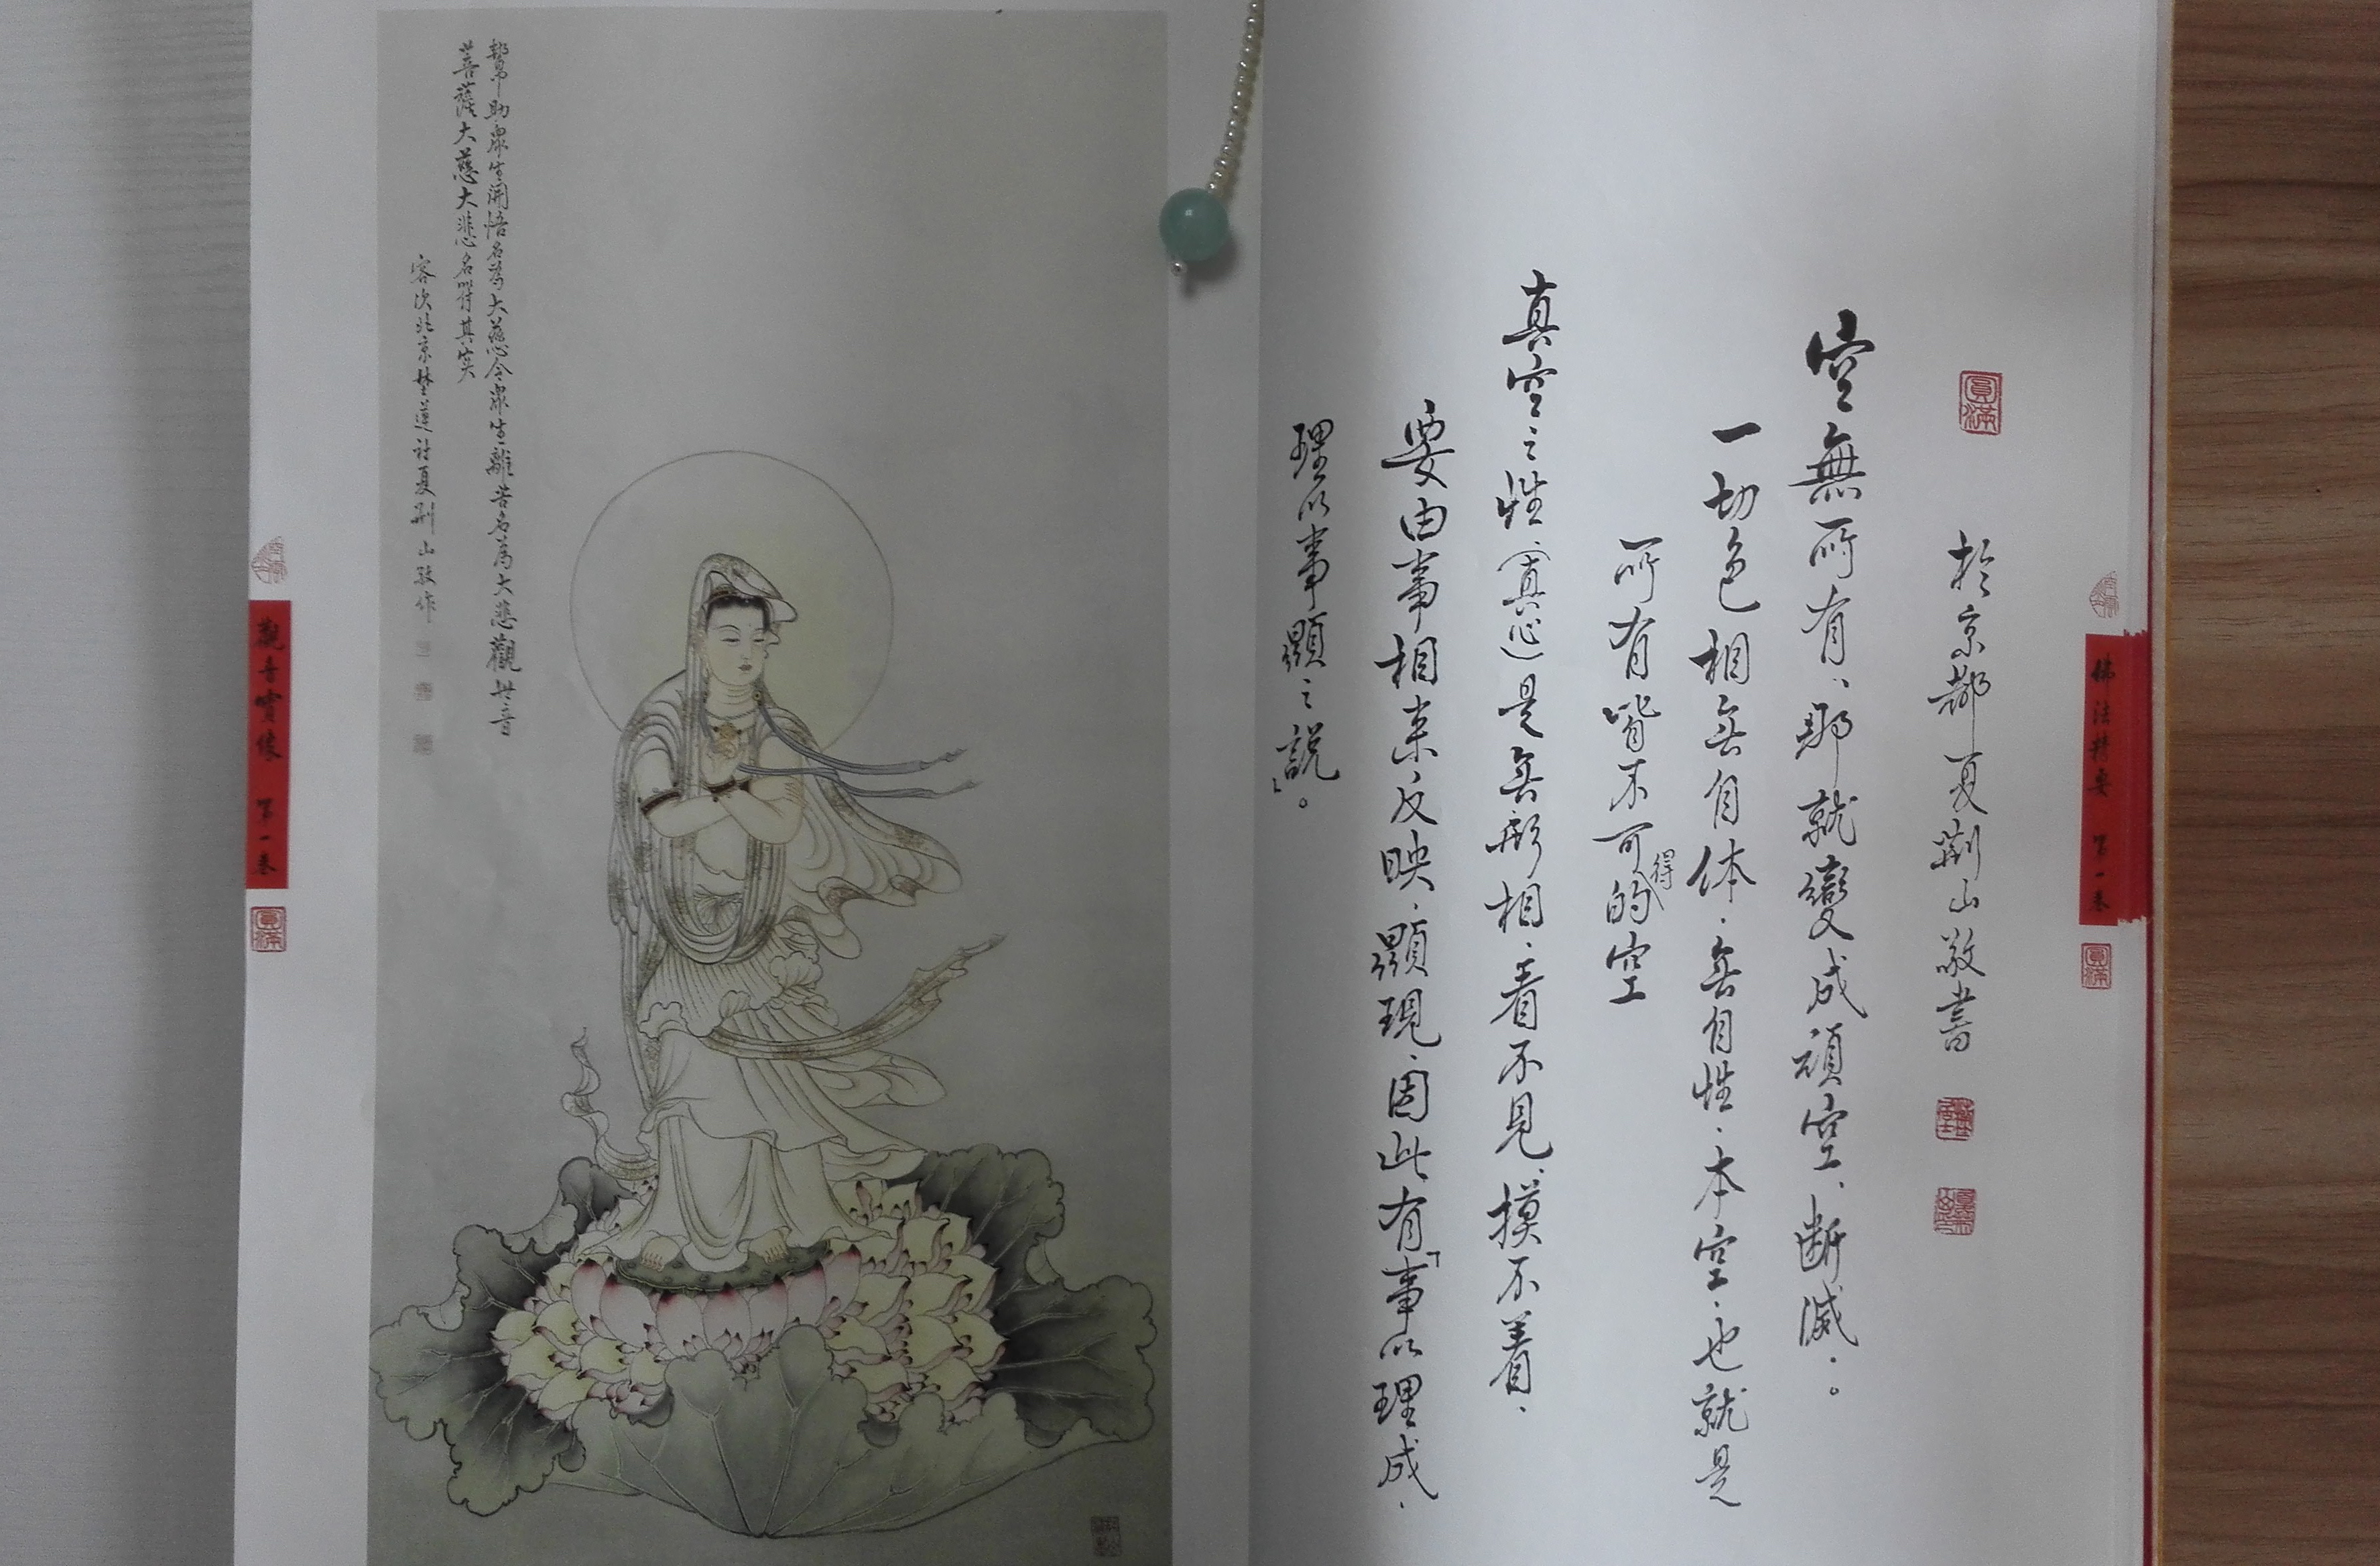 佛法精要 第一卷
圓滿
圓滿
於京都夏荊山敬書
空無所有、那就變成頑空、斷滅、。
一切色相無自体、無自性、本空、也就是
所有皆不可得的空
真空之性、(真心)是無形相、看不見、摸不着、
要由事相來反映、顯現、因此有「事以理成、
理以事顯之説」。
幫助衆生開悟名為大慈令衆生離苦名為大悲觀世音
菩薩大慈大悲名符其實
客次北京楚蓮社夏荊山敬作
觀音寶像 第一卷
圓滿